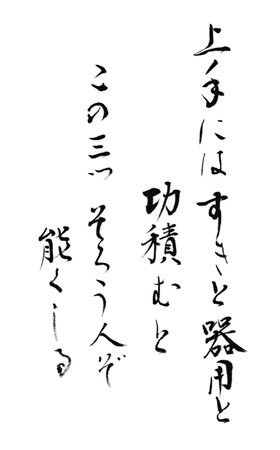 上手にはすきと器用と
功積むと
この三つそろう人ぞ
能くしる